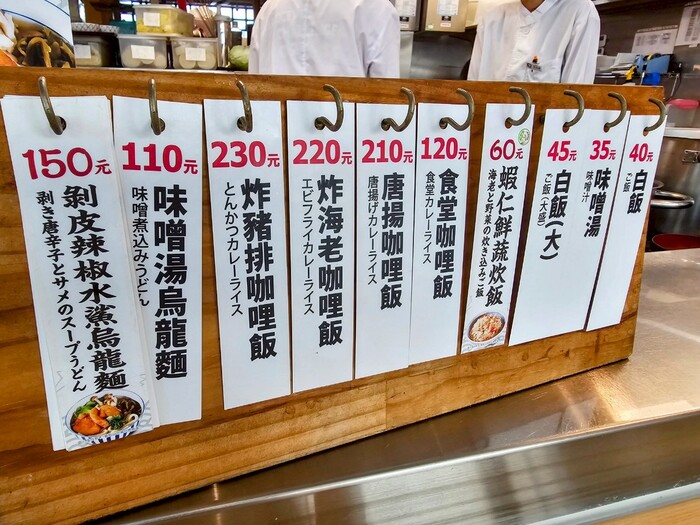 150元
剝皮辣椒水鯊烏龍麵
剥き唐辛子とサメのスープうどん
110元
味噌湯烏龍麵
味噌煮込みうどん
230元
炸豬排咖哩飯
とんかつカレーライス
220元
炸海老咖哩飯
エビフライカレーライス
210元
唐揚咖哩飯
唐揚げカレーライス
120元
食堂咖哩飯
食堂カレーライス
60元
蝦仁鮮蔬炊飯
海老と野菜の炊き込みご飯
45元
白飯(大)
ご飯(大盛)
35元
味噌湯
味噌汁
40元
白飯
ご飯